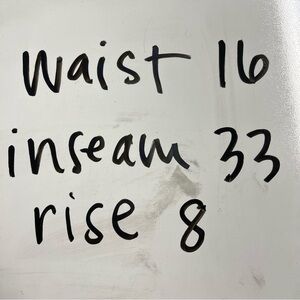 waist 16
inseam 33
rise 8